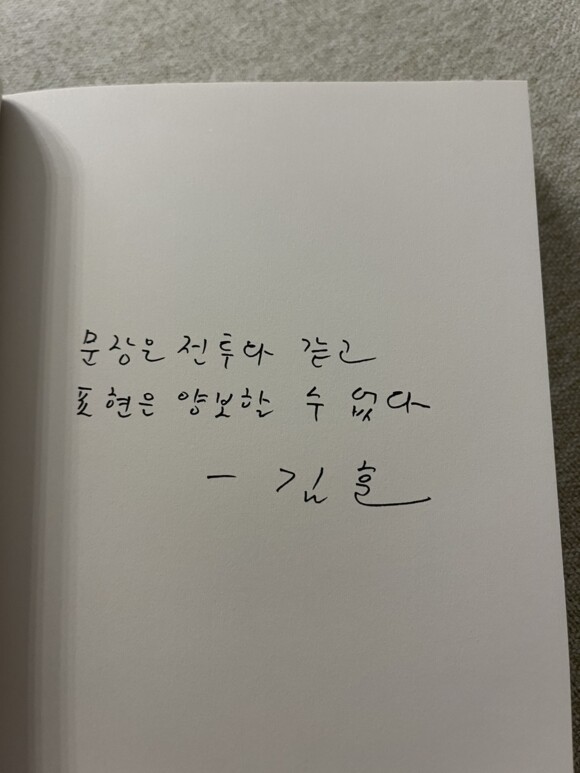 문장은 전투와 같고
표현은 양보할 수 없다
- 김훈